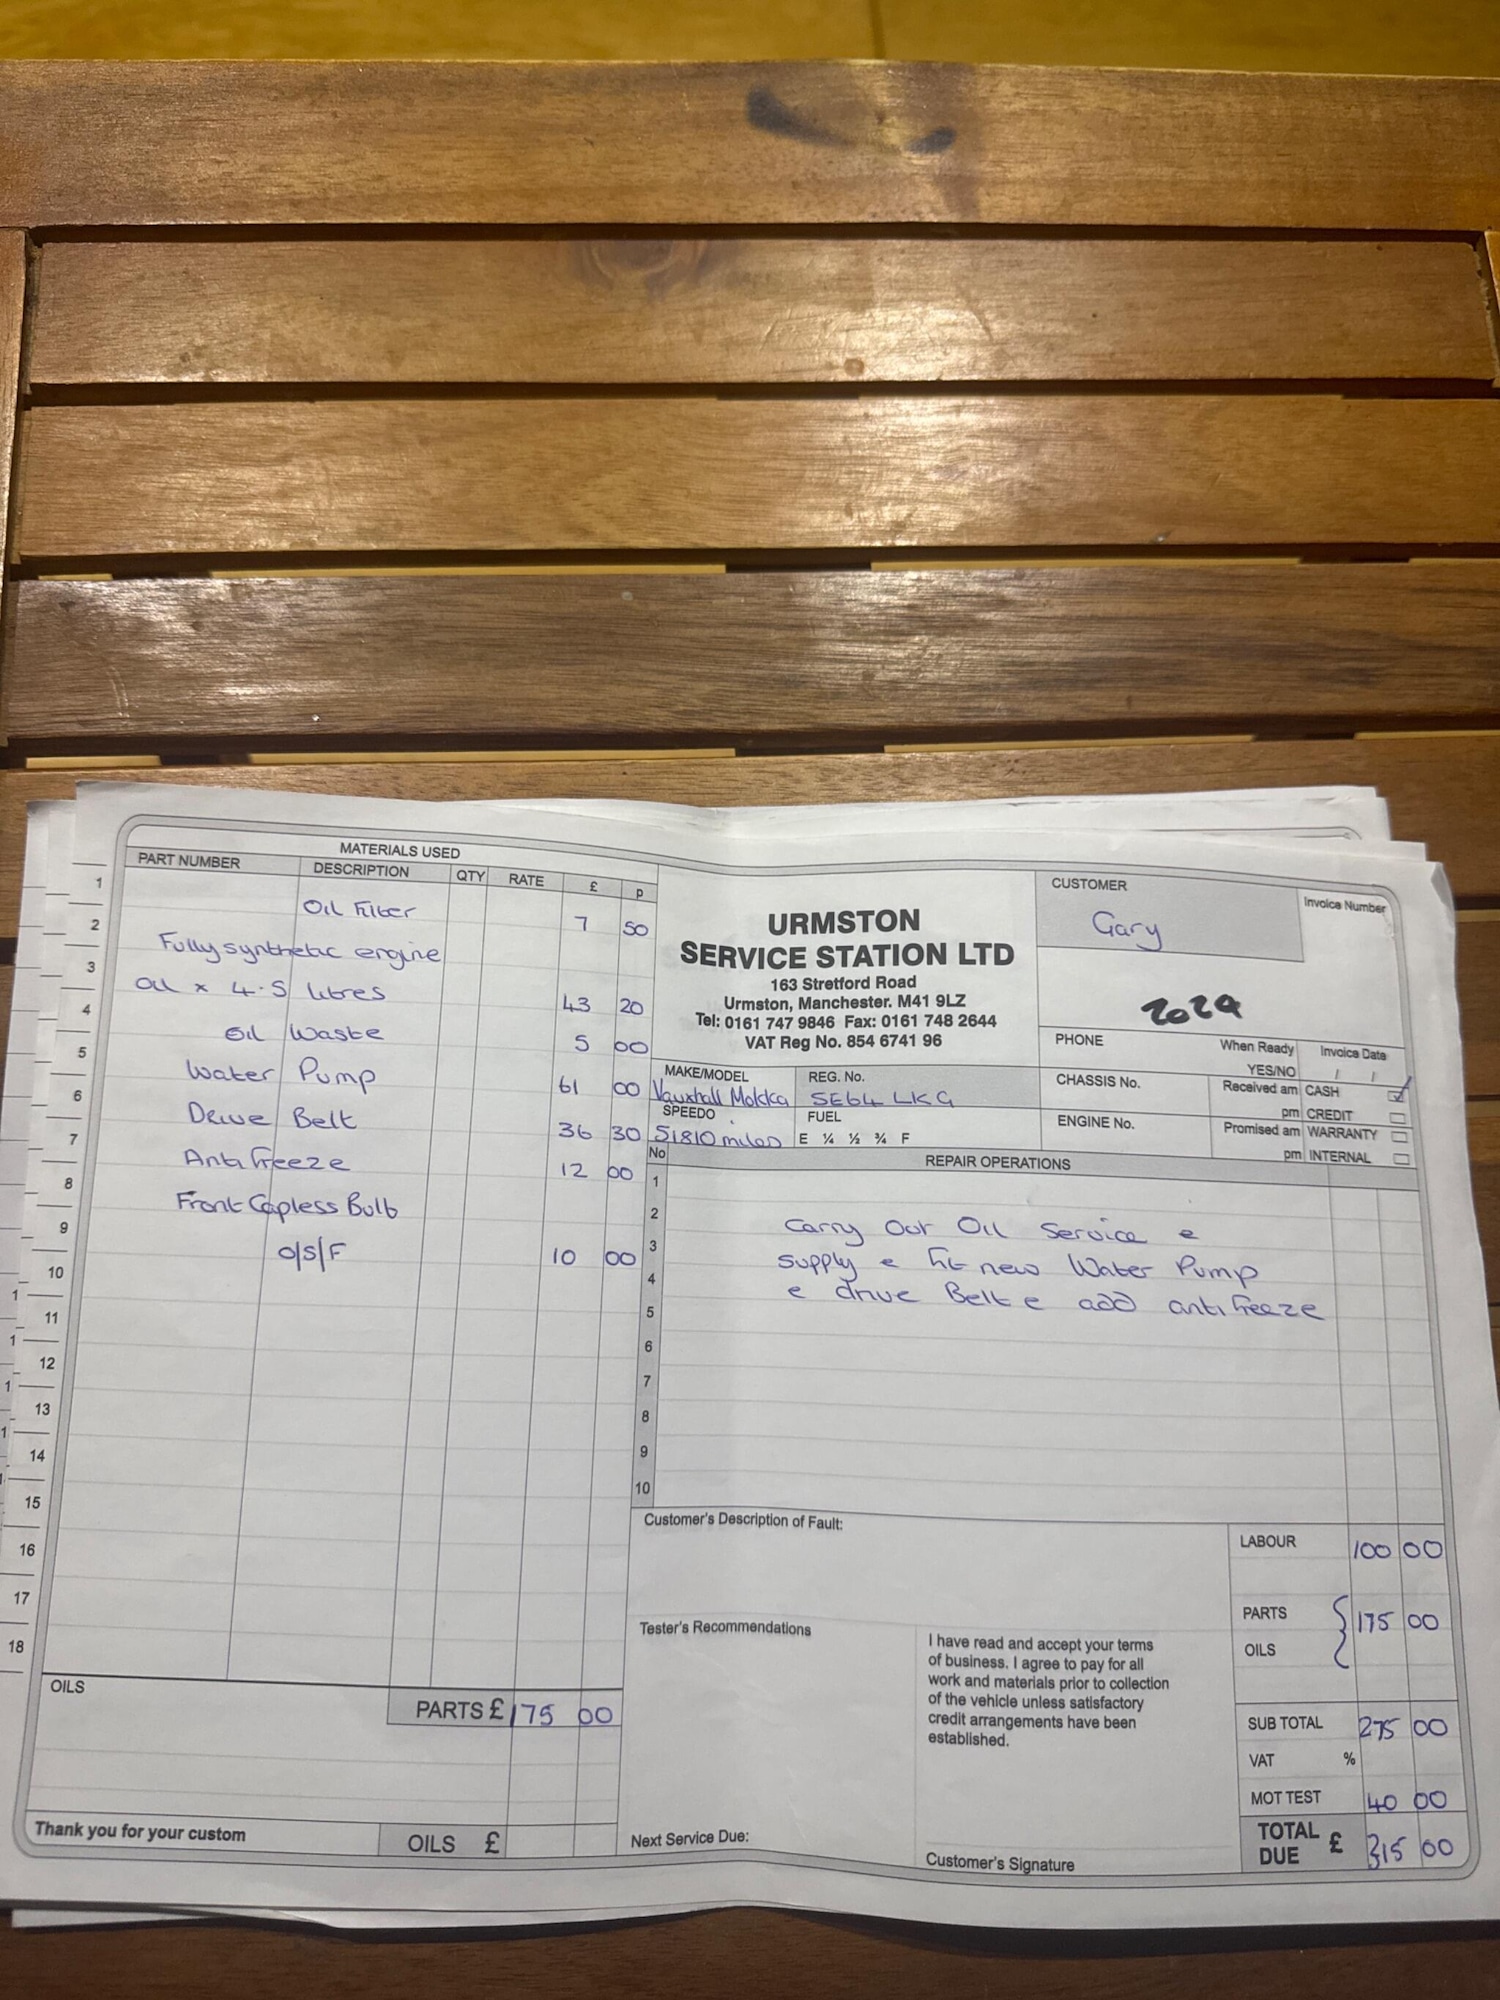 MATERIALS USED
PART NUMBER DESCRIPTION QTY RATE £ p
1
Oil Filter 7 50
2
Fully synthetic engine
3
Oil x 4.5 litres 43 20
4
Oil Waste 5 00
5
Water Pump 61 00
6
Drive Belt 36 30
7
Antifreeze 12 00
8
Front Capless Bulb
9
O/S/F 10 00
10
11
12
13
14
15
16
17
18
OILS
PARTS £ 175 00
Thank you for your custom
OILS £
URMSTON
SERVICE STATION LTD
163 Stretford Road
Urmston, Manchester. M41 9LZ
Tel: 0161 747 9846 Fax: 0161 748 2644
VAT Reg No. 854 6741 96
CUSTOMER
Gary
Invoice Number
2024
PHONE
When Ready
YES/NO
Invoice Date
/ /
MAKE/MODEL
Vauxhall Mokka
REG. No.
SE64 LKG
CHASSIS No.
Received am
pm
CASH
CREDIT
SPEEDO
51810 miles
FUEL
E ¼ ½ ¾ F
ENGINE No.
Promised am
pm
WARRANTY
INTERNAL
No
REPAIR OPERATIONS
1
2
Carry Out Oil Service &
3
supply & fit new Water Pump
4
& drive Belt & add antifreeze
5
6
7
8
9
10
Customer's Description of Fault:
LABOUR 100 00
PARTS 175 00
OILS
Tester's Recommendations
I have read and accept your terms
of business. I agree to pay for all
work and materials prior to collection
of the vehicle unless satisfactory
credit arrangements have been
established.
SUB TOTAL 275 00
VAT %
MOT TEST 40 00
TOTAL
DUE £ 315 00
Next Service Due:
Customer's Signature